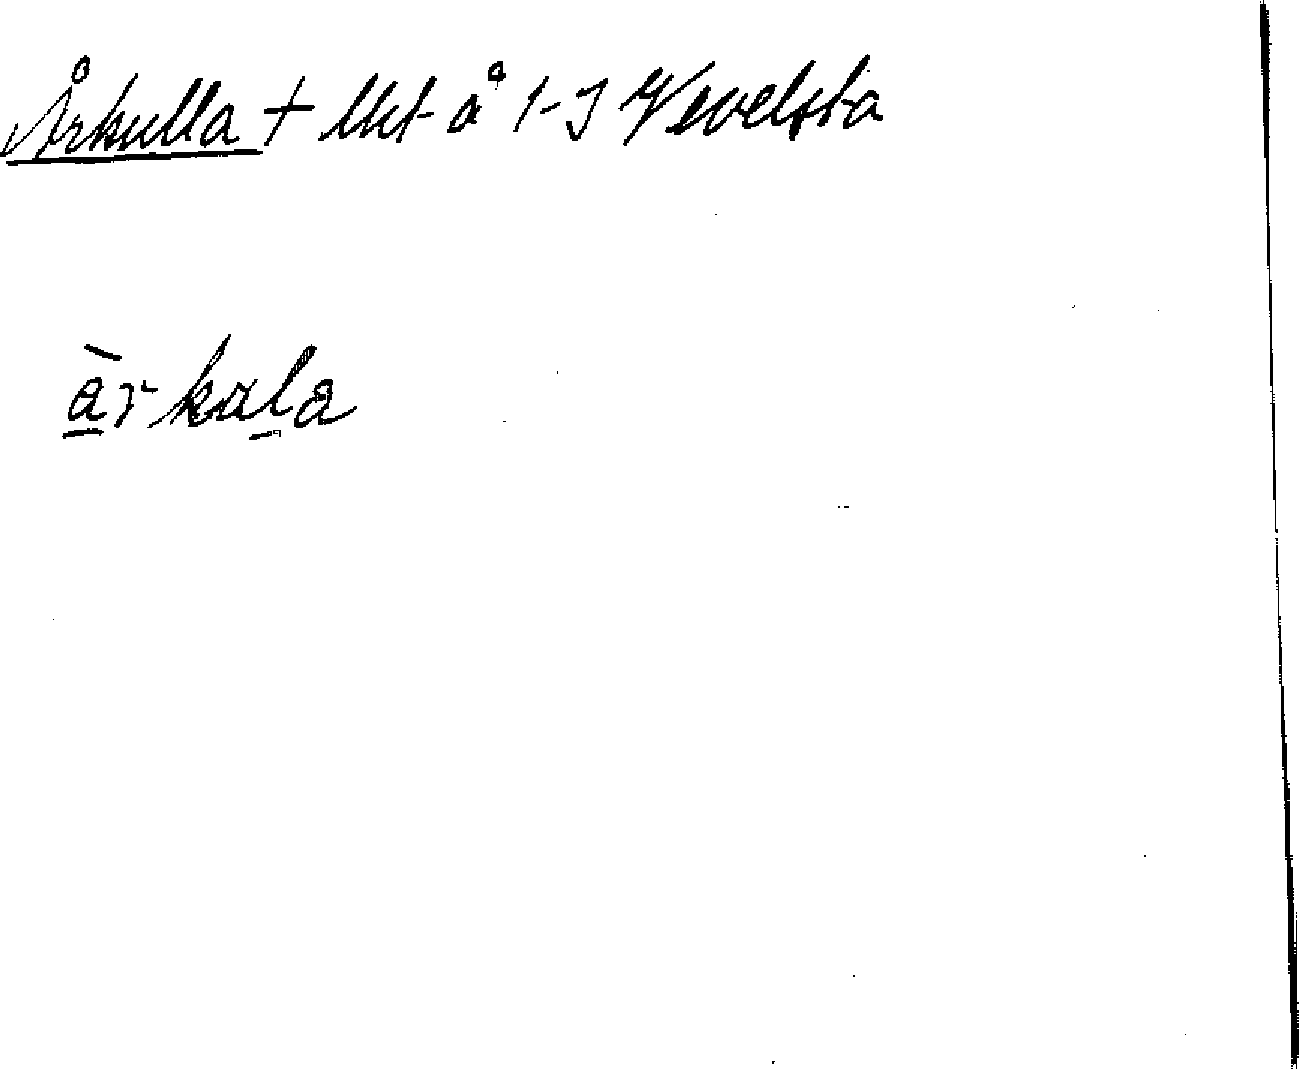 Årkulla + lht å 1-3 Vevelsta
àrkula